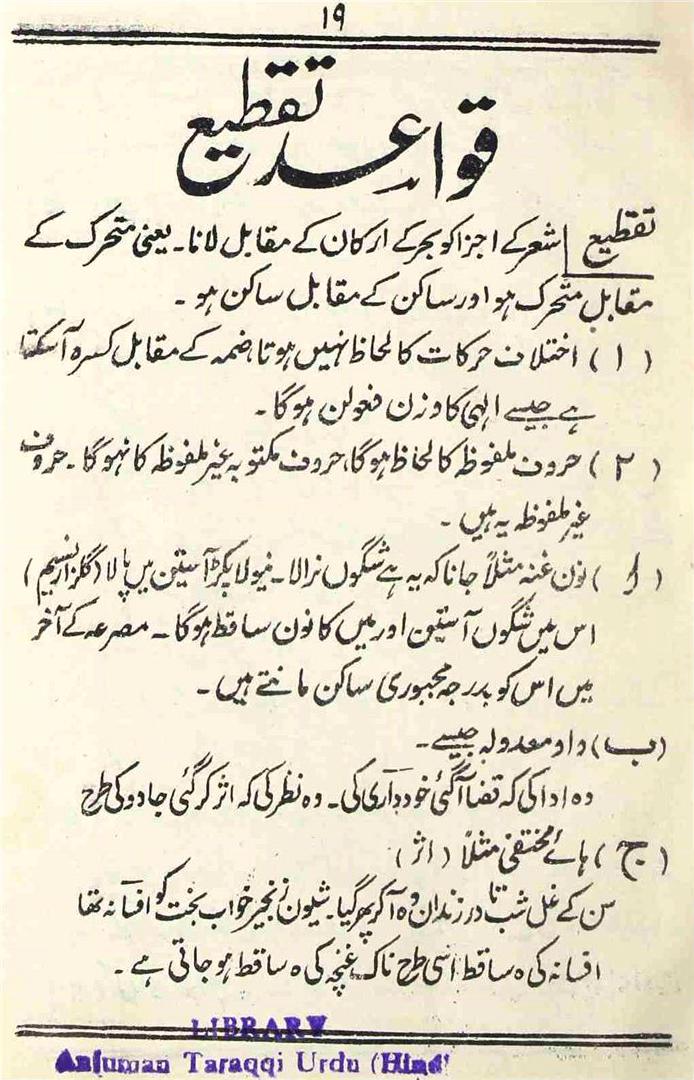 ۱۹
قواعد تقطیع
تقطیع | شعر کے اجزا کو بحر کے ارکان کے مقابل لانا۔ یعنی متحرک کے
مقابل متحرک ہو اور ساکن کے مقابل ساکن ہو ۔
( ۱ ) اختلاف حرکات کا لحاظ نہیں ہوتا ضمہ کے مقابل کسرہ آ سکتا
ہے جیسے الہٰی کا وزن فعولن ہوگا ۔
( ۲ ) حروف ملفوظہ کا لحاظ ہوگا، حروف مکتوبہ غیر ملفوظہ کا نہوگا ۔ حروف
غیر ملفوظہ یہ ہیں ۔
( ا ) نون غنہ مثلاً جانا کہ یہ ہے شگوں نرالا ۔ نیولا پکڑ آستین میں پالا (گلزار نسیم)
اس میں شگوں آستین اور میں کا نون ساقط ہوگا ۔ مصرعہ کے آخر
میں اس کو بدرجہ مجبوری ساکن مانتے ہیں ۔
(ب) واو معدولہ جیسے ۔
وہ ادا کی کہ قضا آ گئی خودداری کی ۔ وہ نظر کی کہ اثر کر گئی جادو کی طرح
( ج ) ہائے مختفی مثلاً ( اثر )
سن کے غل شب تا در زنداں وہ آ کر پھر گیا ۔ شیون زنجیر خواب بخت کو افسانہ تھا
افسانہ کی ہ ساقط اسی طرح ناکہ غنچہ کی ہ ساقط ہو جاتی ہے ۔
LIBRARY
Anjuman Taraqqi Urdu (Hind)